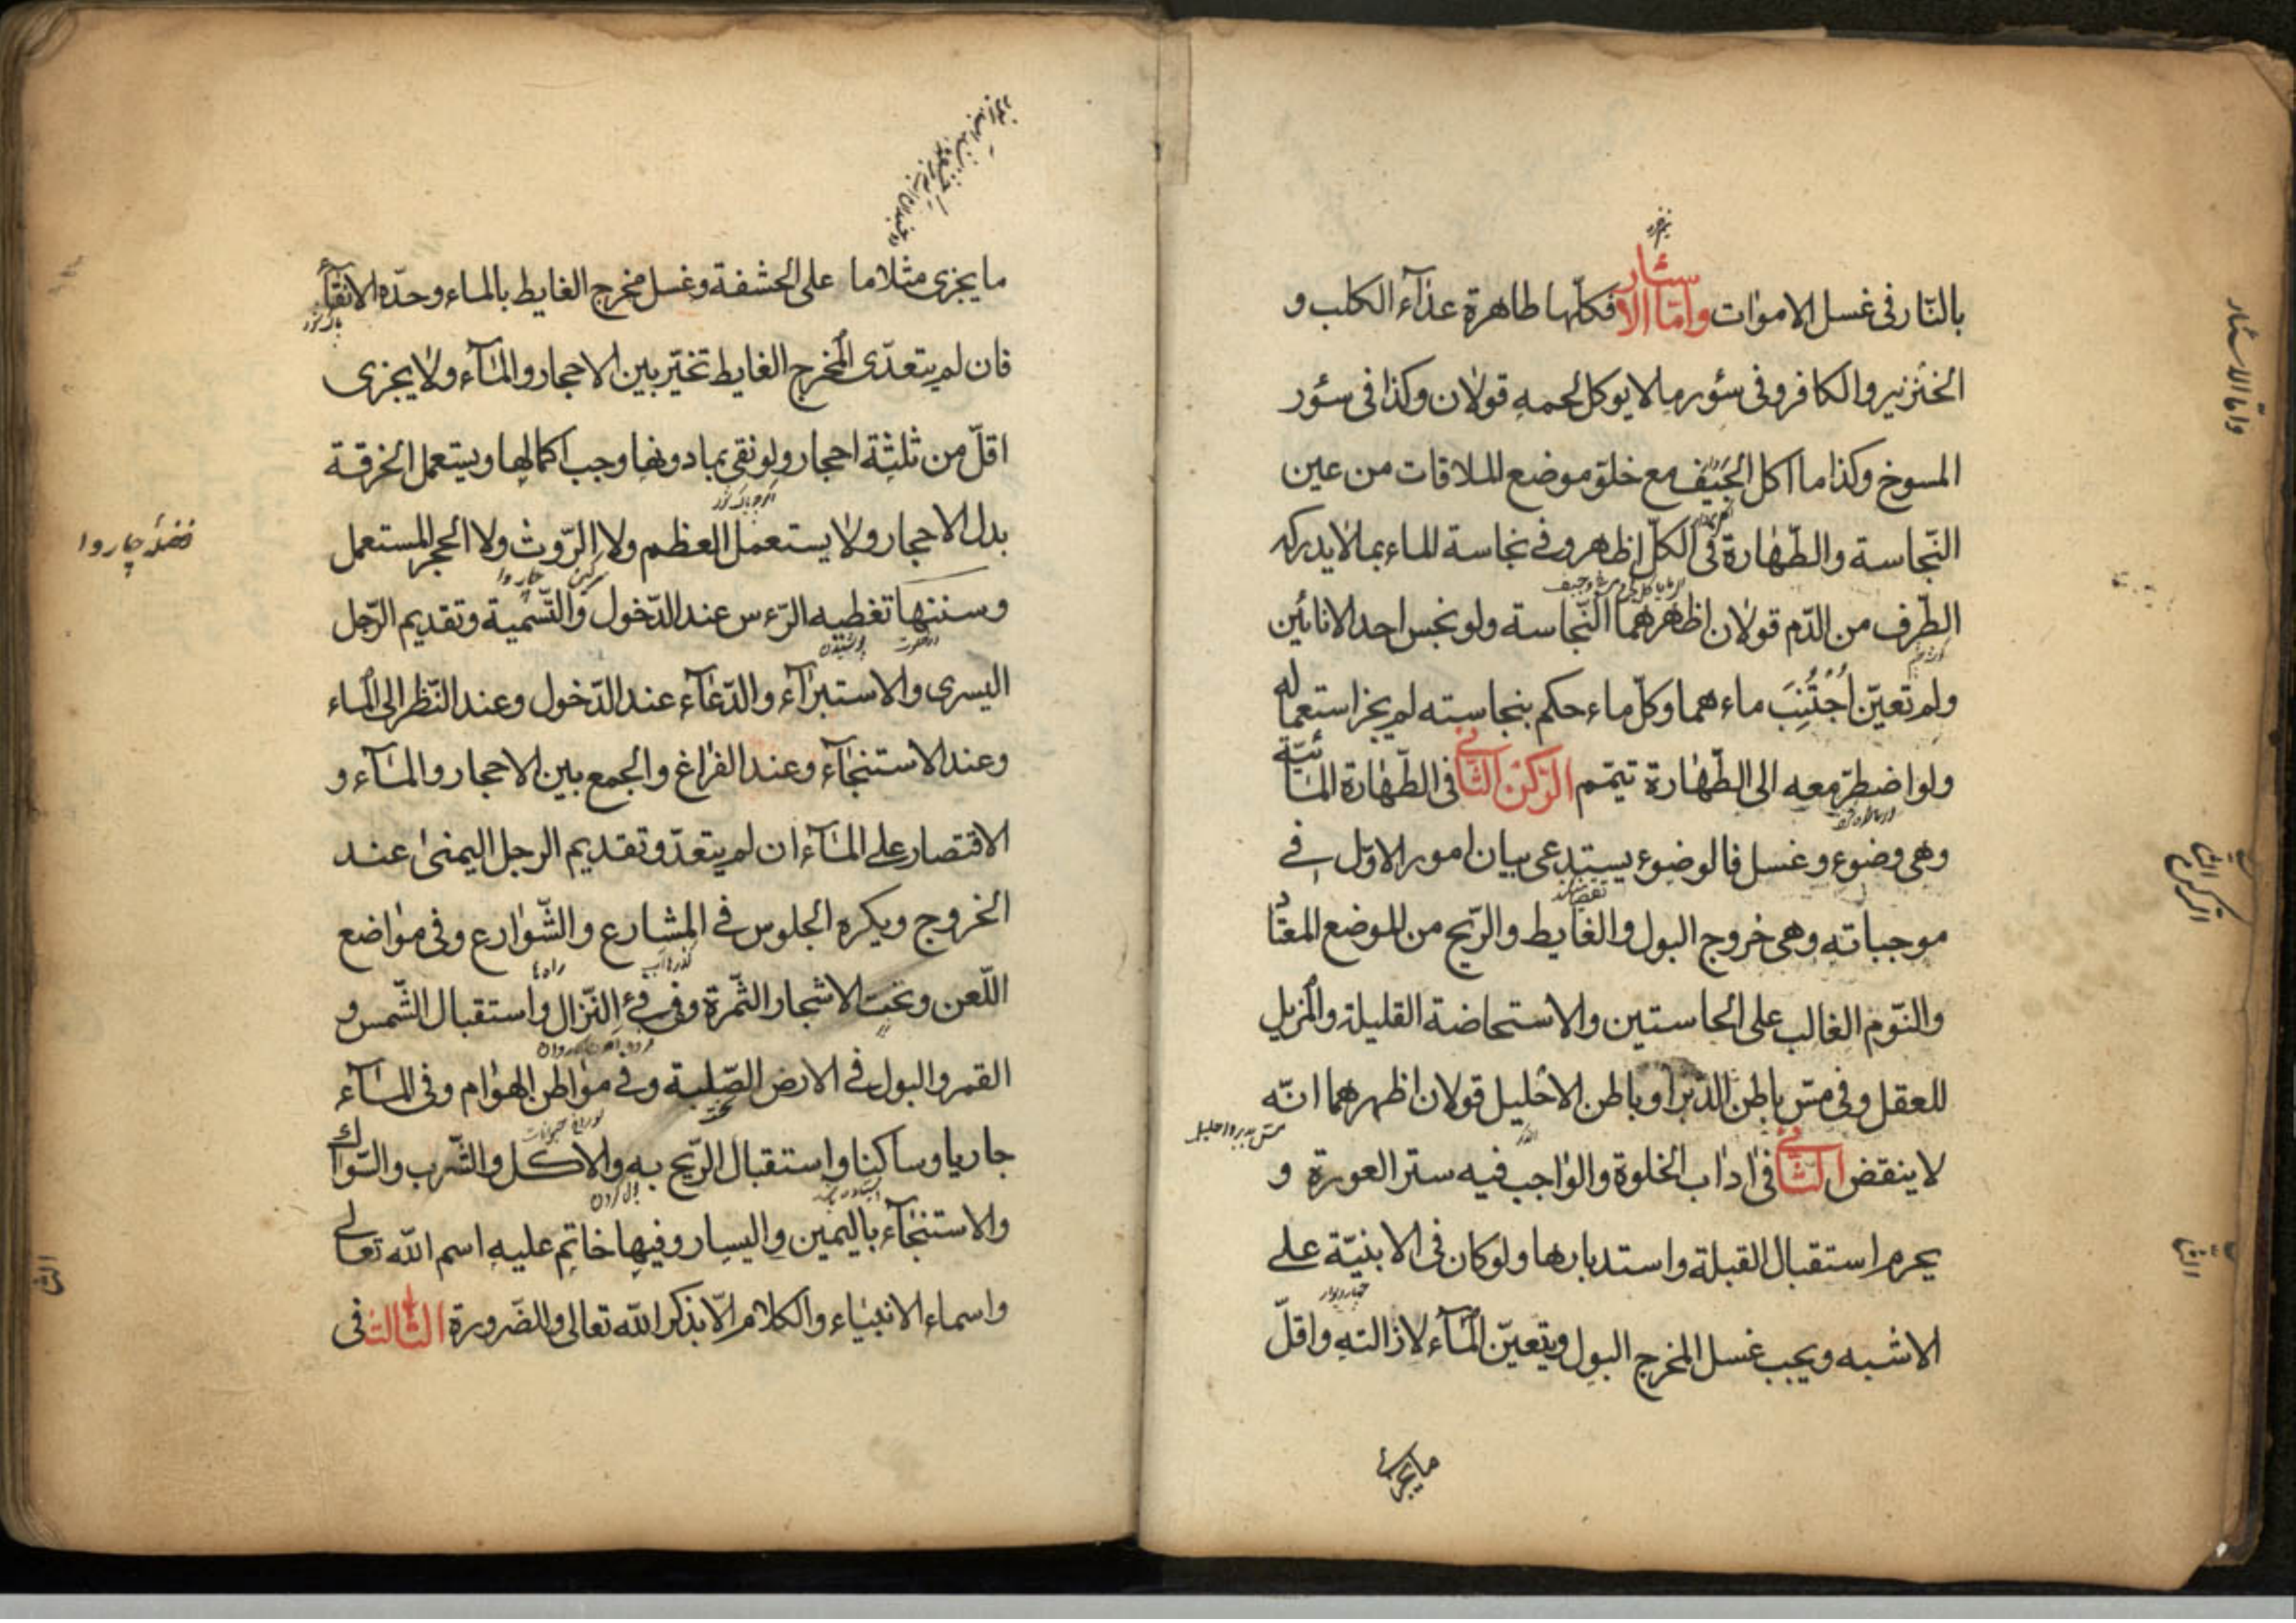 بالنّار فى غسل الاموات وامّا الاسئار فكلّها طاهرة عدآء الكلب و
الخنزير والكافر وفى سؤر ما لا يوكل لحمه قولان وكذا فى سؤر
المسوخ وكذا ما اكل الجيف مع خلوّ موضع الملاقات من عين
النّجاسة والطّهارة فى الكلّ اظهر وفى نجاسة الماء بما لا يدركه
الطّرف من الدّم قولان اظهرهما النّجاسة ولو نجس احد الانائين
ولم تعيّن اُجْتُنِبَ ماءهما وكلّ ماء حكم بنجاسته لم يجز استعماله
ولو اضطرّ معه الى الطّهارة تيمّم الرّكن الثّانى فى الطّهارة المائيّة
وهى وضوء وغسل فالوضوء يستدعى بيان امور الاوّل فى
موجباته وهى خروج البول والغايط والرّيح من الموضع المعتاد
والنّوم الغالب على الحاستين والاستحاضة القليلة والمزيل
للعقل وفى مسّ باطن الدّبر او باطن الاحليل قولان اظهرهما انّه
لا ينقض الثّانى فى اداب الخلوة والواجب فيه ستر العورة و
يحرم استقبال القبلة واستدبارها ولو كان فى الابنيّة على
الاشبه ويجب غسل المخرج البول ويتعيّن المآء لازالته واقلّ
ما يجزى
وامّا الاسئار
الركن الثانى
الثانى
ما يجزى مثلا ما على الحشفة وغسل مخرج الغايط بالماء وحدّه الانقآء
فان لم يتعدّى المخرج الغايط تخيّر بين الاحجار والمآء ولا يجزى
اقلّ من ثلثة احجار ولو نقى بما دونها وجب اكمالها ويستعمل الخرقة
بدل الاحجار ولا يستعمل العظم ولا الرّوث ولا الحجر المستعمل
وسننها تغطيه الرّءس عند الدّخول والتّسمية وتقديم الرّجل
اليسرى والاستبرآء والدّعآء عند الدّخول وعند النّظر الى الماء
وعند الاستنجآء وعند الفراغ والجمع بين الاحجار والمآء و
الاقتصار على المآء ان لم يتعدّ وتقديم الرجل اليمنى عند
الخروج ويكره الجلوس فى المشارع والشّوارع وفى مواضع
اللّعن وتحت الاشجار الثّمرة وفى فىء النّزال واستقبال الشّمس و
القمر والبول فى الارض الصّلبة وفى مواطن الهوام وفى المآء
جاريا وساكنا واستقبال الرّيح به والاكل والشّرب والسّواك
والاستنجآء باليمين واليسار وفيها خاتم عليه اسم الله تعالى
واسماء الانبياء والكلام الّا بذكر الله تعالى والضّرورة الثّالث فى
فضلۀ چاروا